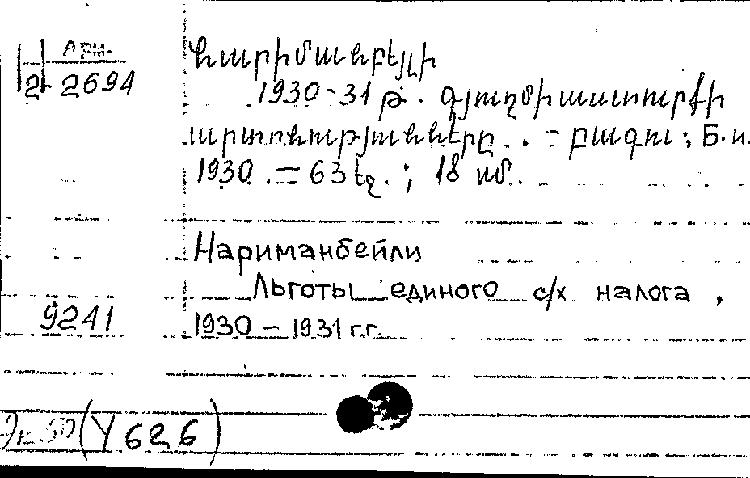 Арм.
2- 2694
Նարիմանբէյլի
1930-31 թ. գյուղմիաստուրքի
արտոնությունները. = Բագու; Б.и.
1930. = 63 էջ.; 18 սմ.
Нариманбейли
Льготы единого с/х налога,
9241
1930 - 1931 г.г.
(У 626)